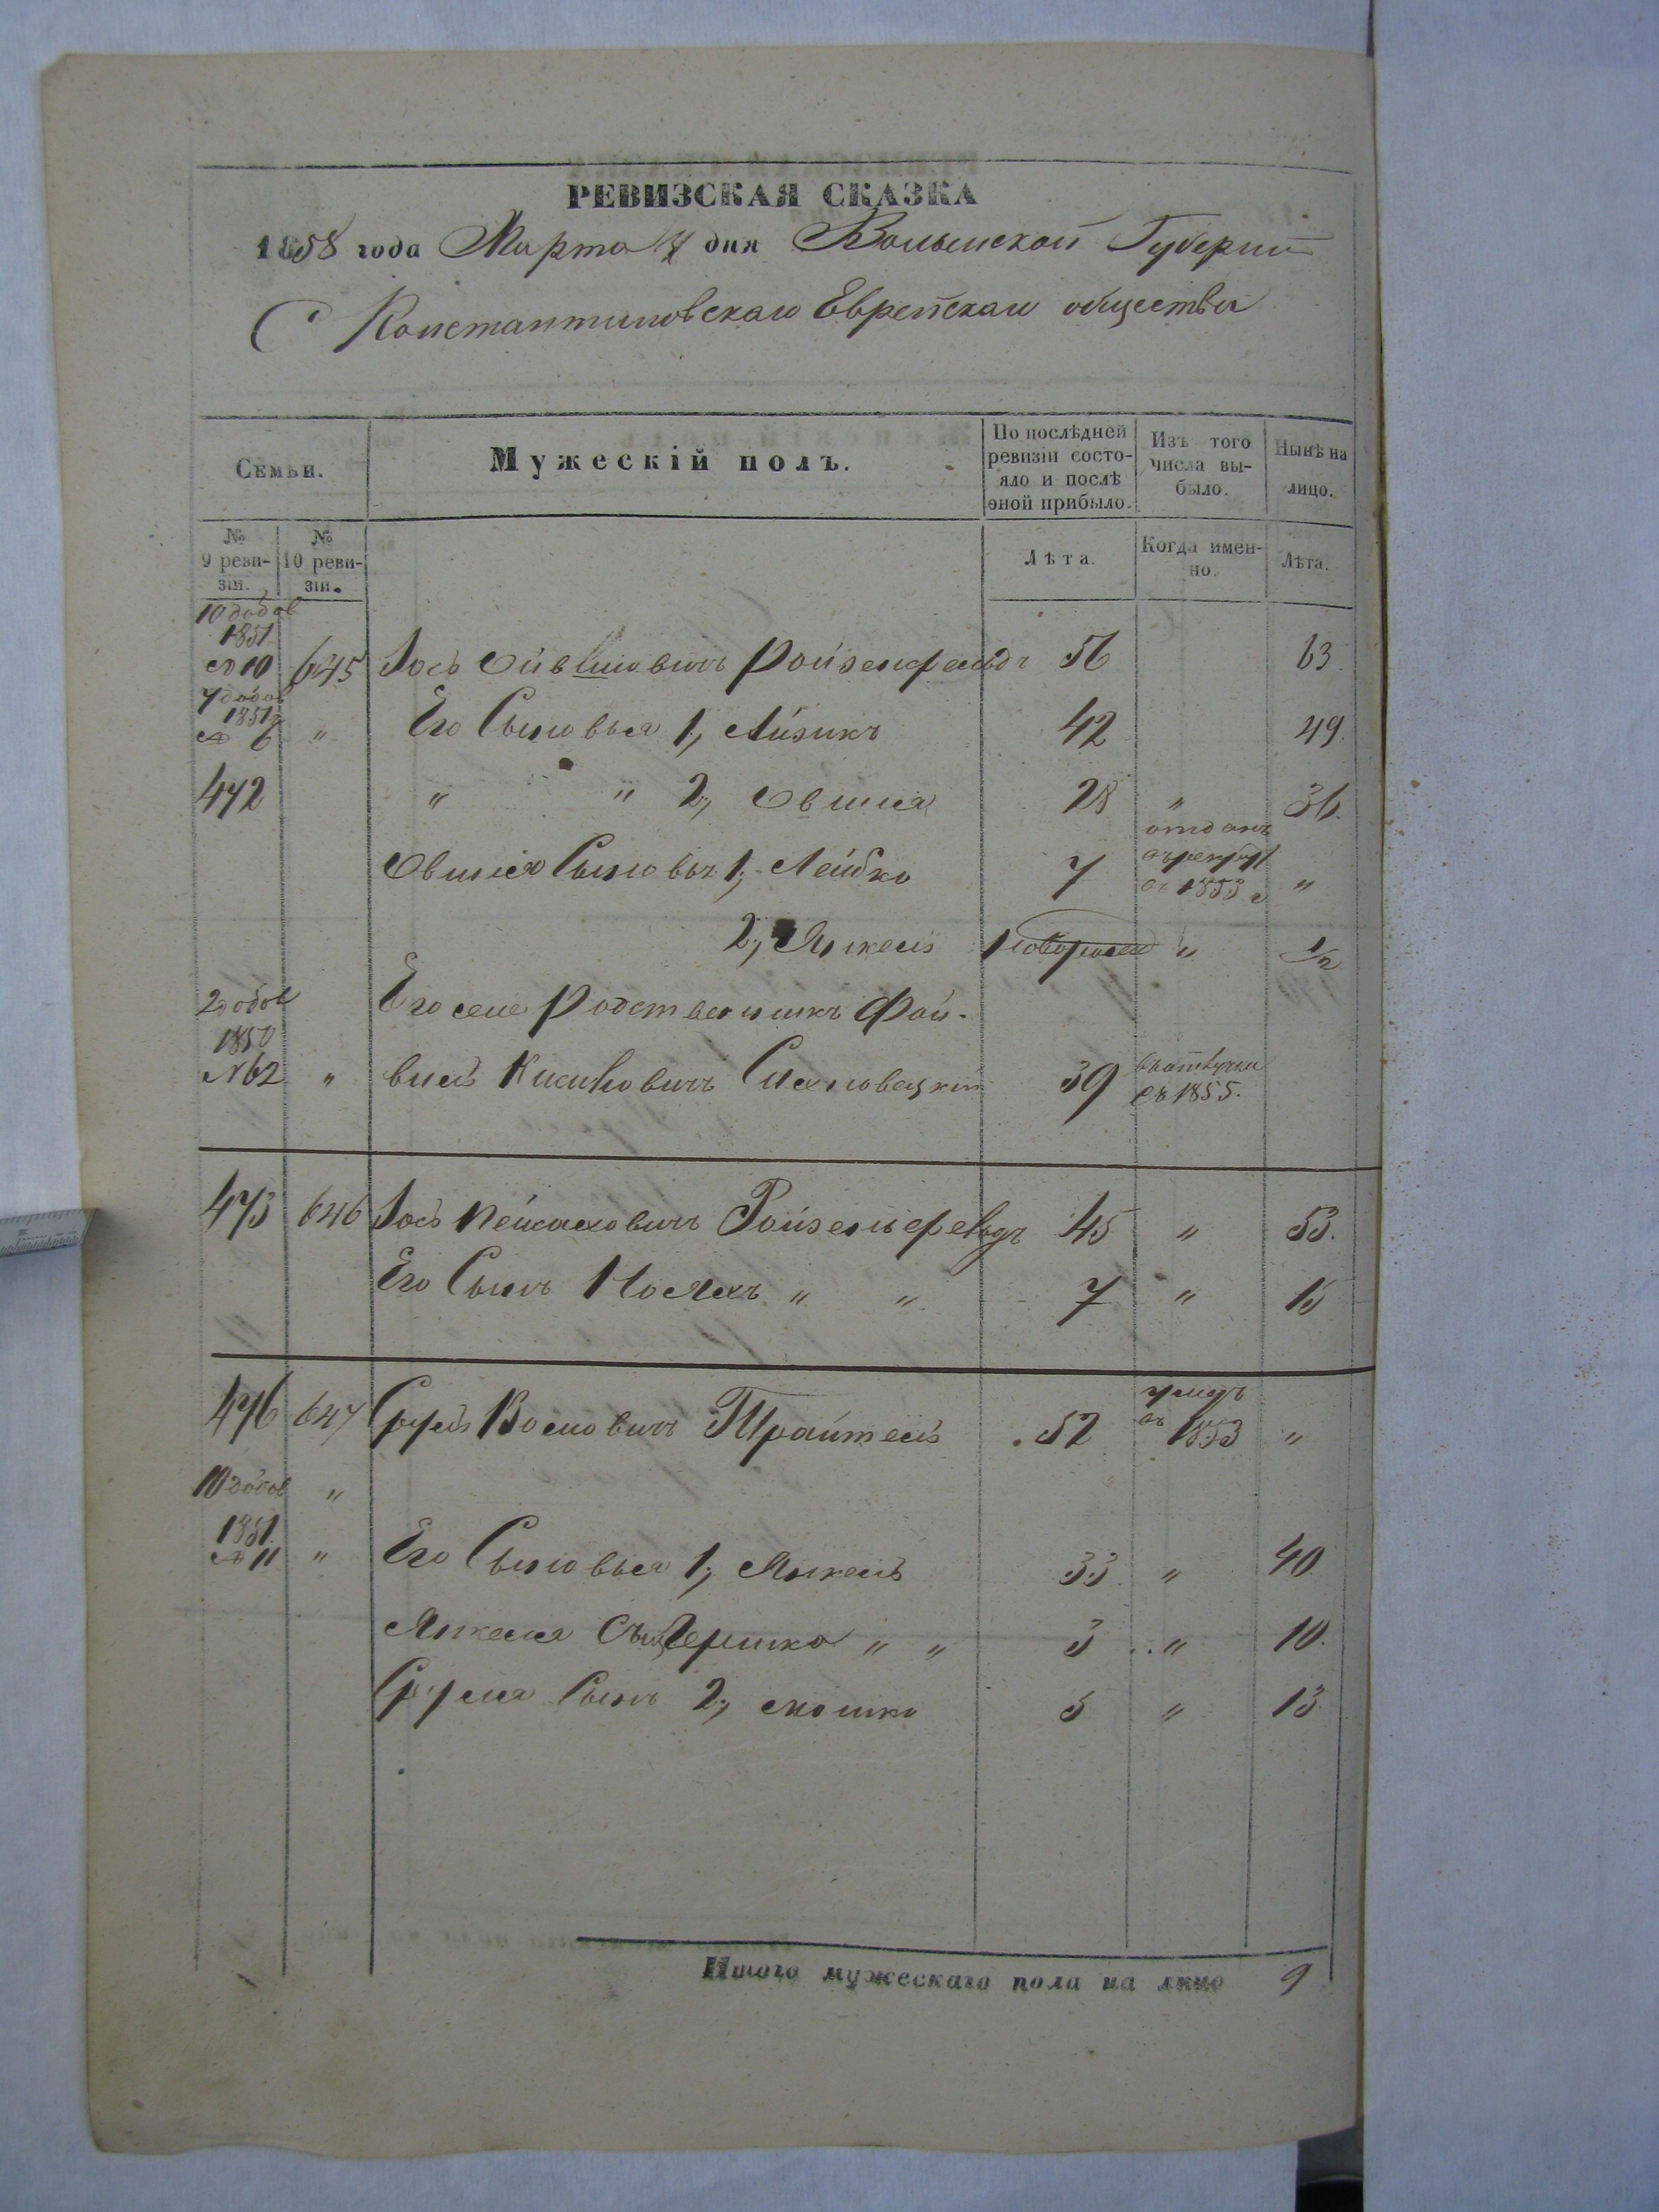 РЕВИЗСКАЯ СКАЗКА
1858 года Марта дня Волынской Губернии
С Константиновскаго Еврейскаго общества
Семьи.
Мужескій полъ.
По послѣдней ревизіи состояло и послѣ оной прибыло.
Изъ того числа выбыло.
Нынѣ на лицо.
№ 9 ревизіи.
№ 10 ревизіи.
Лѣта.
Когда именно.
Лѣта.
10 добов 1851 № 10 645 Іось Овшіовичъ Ройзенфельдъ 56 63
7 добов 1851 № 6 " Его Сыновья 1, Айзикъ 42 49.
472 " " 2, Овшия 28 " 36.
Овшія Сыновья 1, Лейбко 7 отданъ въ рекруты въ 1853 г "
2, Янкель новорожден " 1/2
Его же Родственникъ Фай-
2 добов 1850 № 62 " вишъ 39 въ отлучки съ 1855.
473 646 Іось Пейсаховичъ Ройзенфельдъ 45 " 53.
Его Сынъ " " 7 " 15
476 647 Сруль Трайтель 52 умеръ въ 1853 "
10 добов "
1851. № 11 " Его Сыновья 1, Янкель 33 " 40
Янкеля Сынъ Гершко " " 3 " 10.
Сруля Сынъ 2, Мошко 5 " 13
Итого мужескаго пола на лицо 9